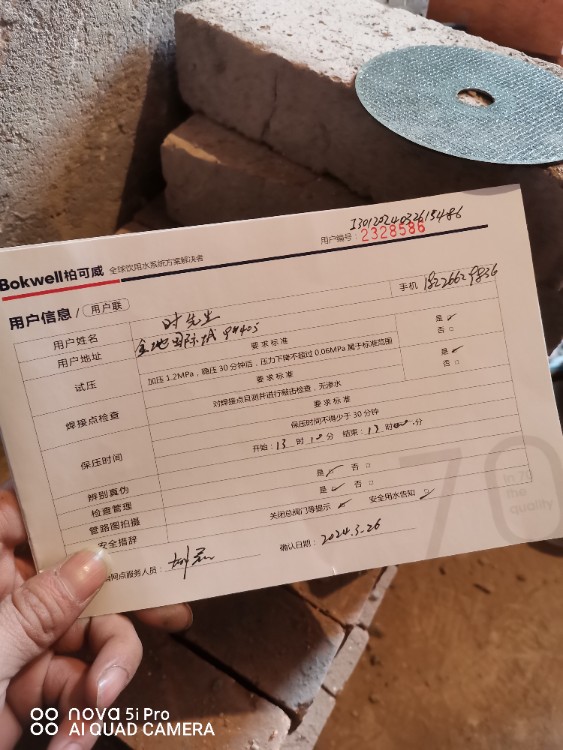 I3012024032615486
Bokwell柏可威 全球饮用水系统方案解决者 用户编号 2328586
用户信息/ 用户联 手机
用户姓名 时先生
用户地址 金地国际城
要求标准 是✓
试压 加压1.2MPa，稳压30分钟后，压力下降不超过0.06MPa属于标准范围 否□
要求标准 是✓
焊接点检查 对焊接点目测并进行敲击检查，无渗水 否□
要求标准
保压时间 保压时间不得少于30分钟
开始：13 时 分 结束：13 时 分
辨别真伪 是✓ 否□
检查管理 是✓ 否□
管路图拍摄
安全措辞 关闭总阀门等提示✓ 安全用水告知✓
网点服务人员： 确认日期：2024.3.26
70
in 70
the
quality
nova 5i Pro
AI QUAD CAMERA